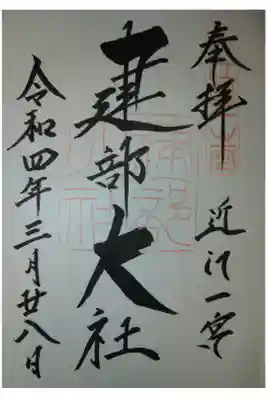 奉拝
近江一宮
建部大社
令和四年三月廿八日